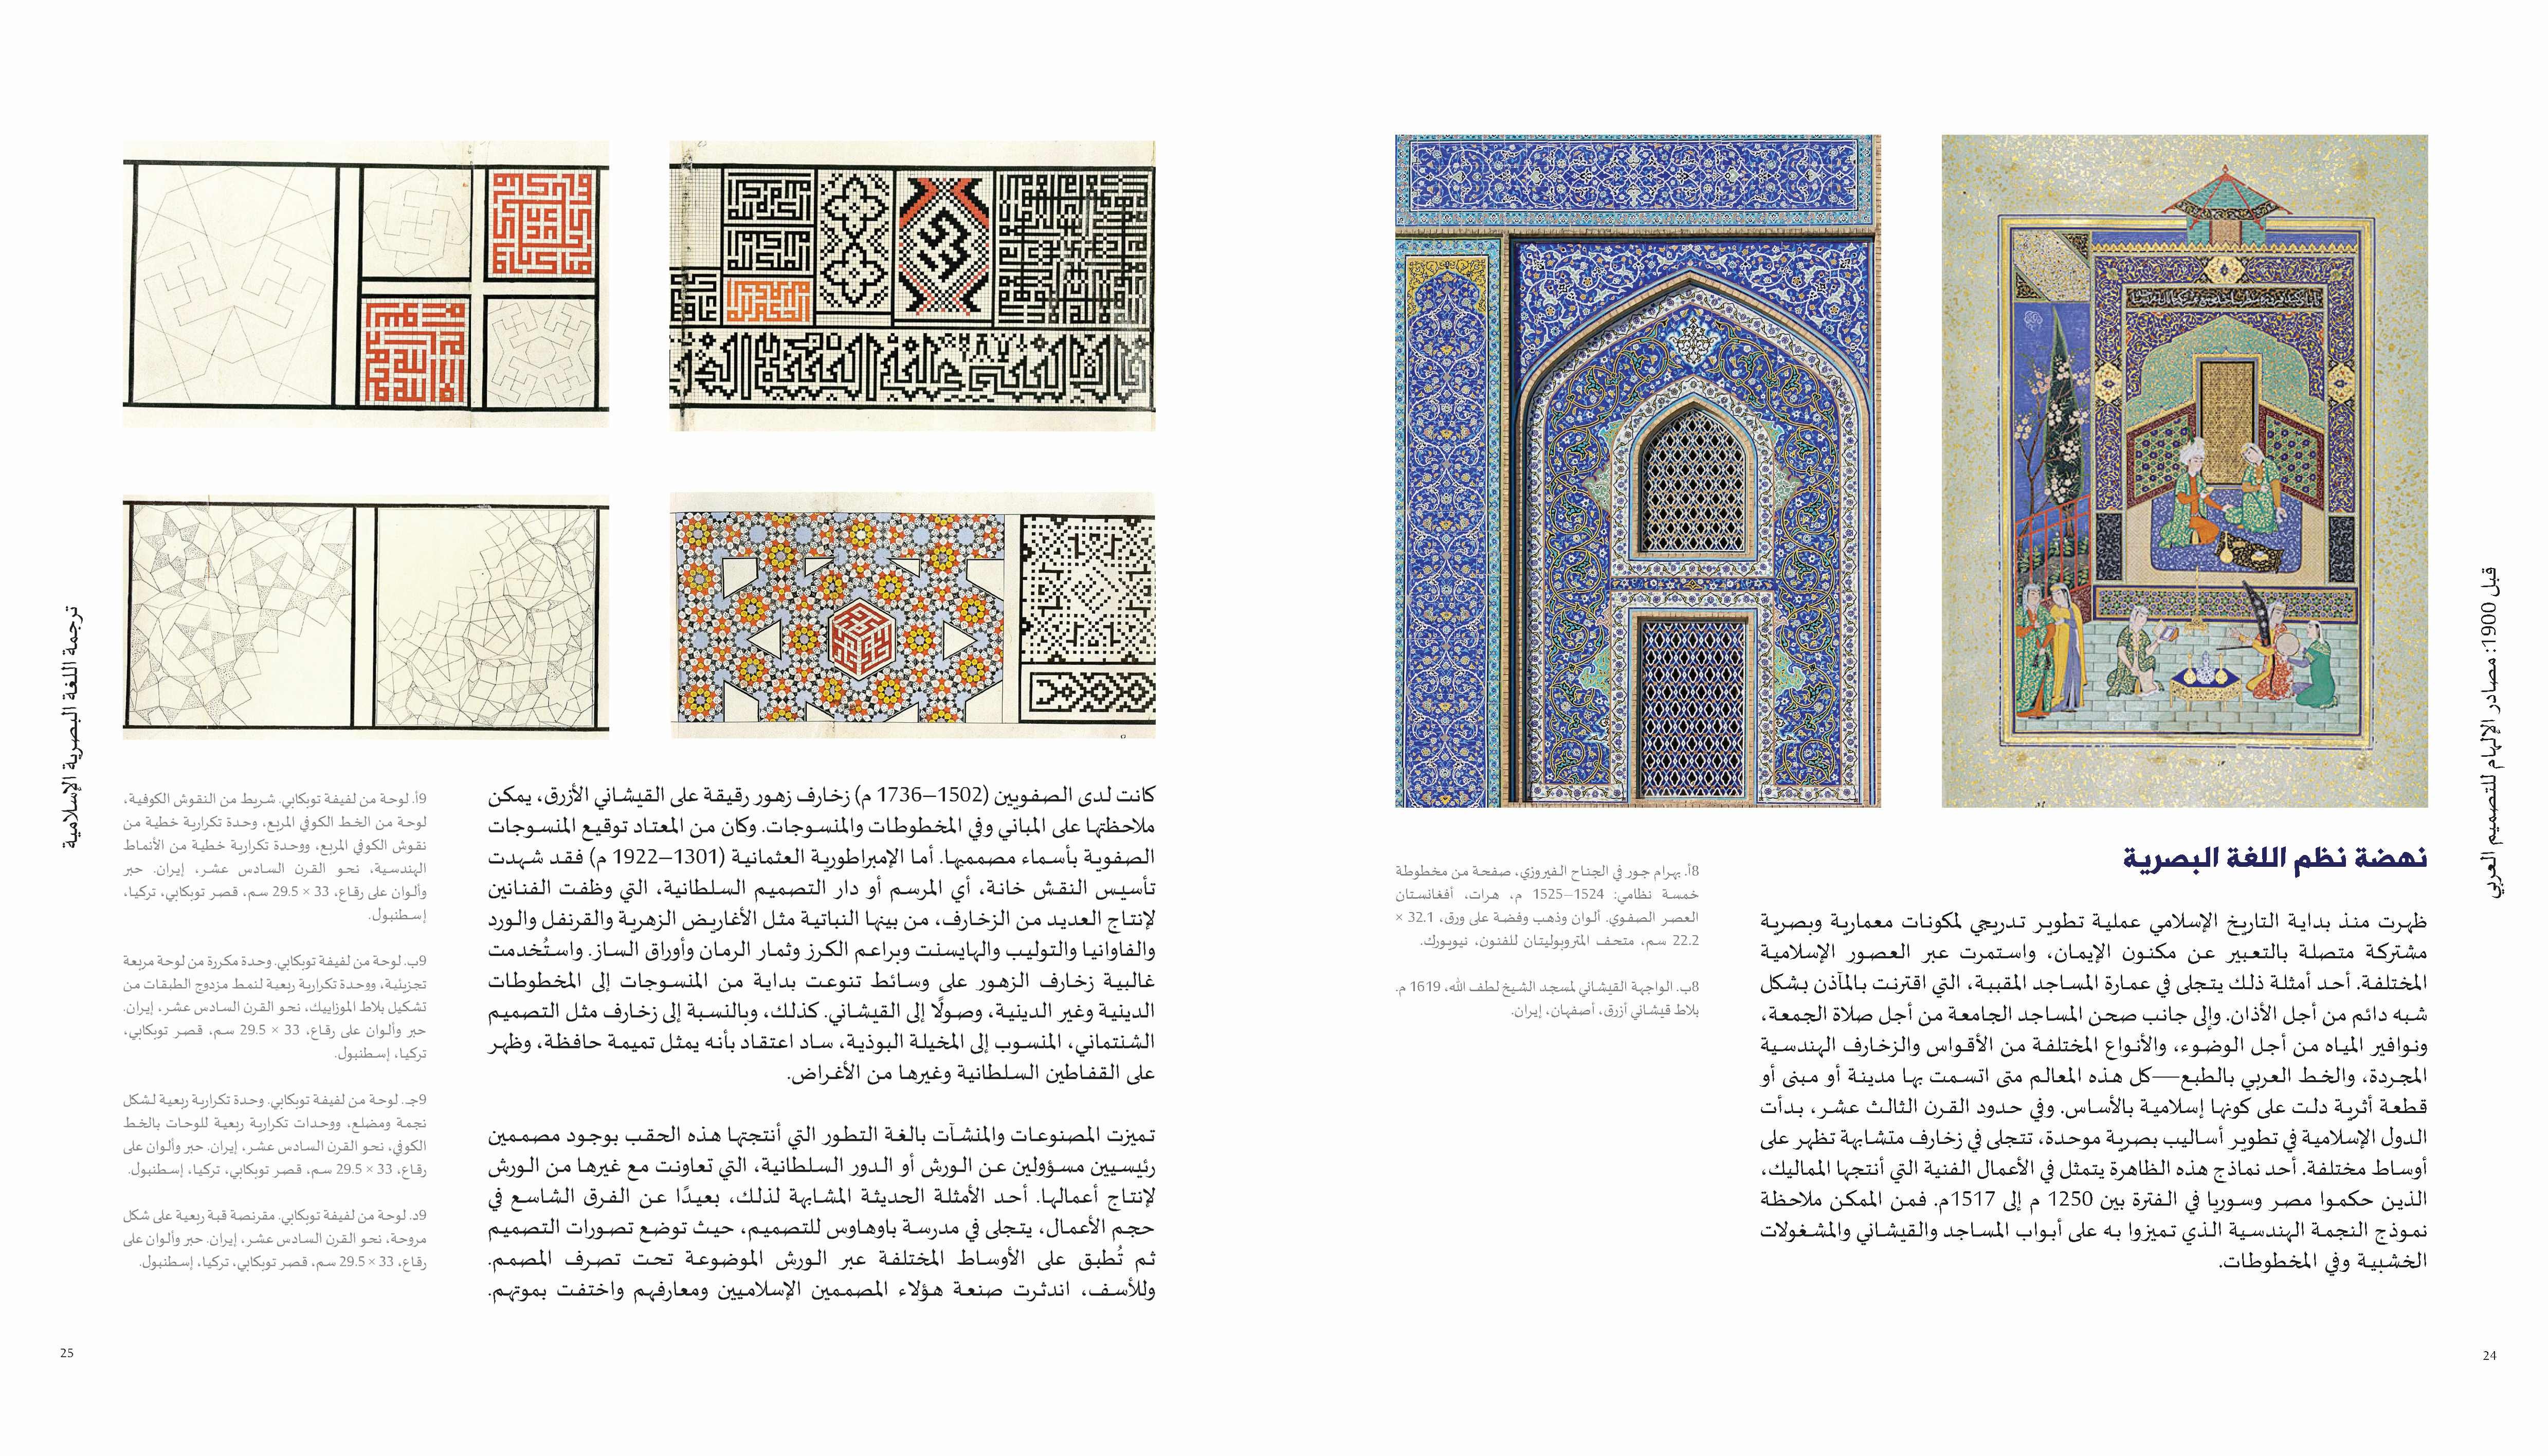 قبل 1900: مصادر الإلهام للتصميم العربي
نهضة نظم اللغة البصرية
ظهرت منذ بداية التاريخ الإسلامي عملية تطوير تدريجي لمكونات معمارية وبصرية
مشتركة متصلة بالتعبير عن مكنون الإيمان، واستمرت عبر العصور الإسلامية
المختلفة. أحد أمثلة ذلك يتجلى في عمارة المساجد المقببة، التي اقترنت بالمآذن بشكل
شبه دائم من أجل الأذان. وإلى جانب صحن المساجد الجامعة من أجل صلاة الجمعة،
ونوافير المياه من أجل الوضوء، والأنواع المختلفة من الأقواس والزخارف الهندسية
المجردة، والخط العربي بالطبع—كل هذه المعالم متى اتسمت بها مدينة أو مبنى أو
قطعة أثرية دلت على كونها إسلامية بالأساس. وفي حدود القرن الثالث عشر، بدأت
الدول الإسلامية في تطوير أساليب بصرية موحدة، تتجلى في زخارف متشابهة تظهر على
أوساط مختلفة. أحد نماذج هذه الظاهرة يتمثل في الأعمال الفنية التي أنتجها المماليك،
الذين حكموا مصر وسوريا في الفترة بين 1250 م إلى 1517م. فمن الممكن ملاحظة
نموذج النجمة الهندسية الذي تميزوا به على أبواب المساجد والقيشاني والمشغولات
الخشبية وفي المخطوطات.
8أ. بهرام جور في الجناح الفيروزي، صفحة من مخطوطة
خمسة نظامي: 1524–1525 م، هرات، أفغانستان
العصر الصفوي. ألوان وذهب وفضة على ورق، 32.1 ×
22.2 سم، متحف المتروبوليتان للفنون، نيويورك.
8ب. الواجهة القيشاني لمسجد الشيخ لطف الله، 1619 م.
بلاط قيشاني أزرق، أصفهان، إيران.
24
كانت لدى الصفويين (1502–1736 م) زخارف زهور رقيقة على القيشاني الأزرق، يمكن
ملاحظتها على المباني وفي المخطوطات والمنسوجات. وكان من المعتاد توقيع المنسوجات
الصفوية بأسماء مصمميها. أما الإمبراطورية العثمانية (1301–1922 م) فقد شهدت
تأسيس النقش خانة، أي المرسم أو دار التصميم السلطانية، التي وظفت الفنانين
لإنتاج العديد من الزخارف، من بينها النباتية مثل الأغاريض الزهرية والقرنفل والورد
والفاوانيا والتوليب والهايسنت وبراعم الكرز وثمار الرمان وأوراق الساز. واستُخدمت
غالبية زخارف الزهور على وسائط تنوعت بداية من المنسوجات إلى المخطوطات
الدينية وغير الدينية، وصولًا إلى القيشاني. كذلك، وبالنسبة إلى زخارف مثل التصميم
الشنتماني، المنسوب إلى المخيلة البوذية، ساد اعتقاد بأنه يمثل تميمة حافظة، وظهر
على القفاطين السلطانية وغيرها من الأغراض.
تميزت المصنوعات والمنشآت بالغة التطور التي أنتجتها هذه الحقب بوجود مصممين
رئيسيين مسؤولين عن الورش أو الدور السلطانية، التي تعاونت مع غيرها من الورش
لإنتاج أعمالها. أحد الأمثلة الحديثة المشابهة لذلك، بعيدًا عن الفرق الشاسع في
حجم الأعمال، يتجلى في مدرسة باوهاوس للتصميم، حيث توضع تصورات التصميم
ثم تُطبق على الأوساط المختلفة عبر الورش الموضوعة تحت تصرف المصمم.
وللأسف، اندثرت صنعة هؤلاء المصممين الإسلاميين ومعارفهم واختفت بموتهم.
9أ. لوحة من لفيفة توبكابي. شريط من النقوش الكوفية،
لوحة من الخط الكوفي المربع، وحدة تكرارية خطية من
نقوش الكوفي المربع، ووحدة تكرارية خطية من الأنماط
الهندسية، نحو القرن السادس عشر، إيران. حبر
وألوان على رقاع، 33 × 29.5 سم، قصر توبكابي، تركيا،
إسطنبول.
9ب. لوحة من لفيفة توبكابي. وحدة مكررة من لوحة مربعة
تجزيئية، ووحدة تكرارية ربعية لنمط مزدوج الطبقات من
تشكيل بلاط الموزاييك، نحو القرن السادس عشر، إيران.
حبر وألوان على رقاع، 33 × 29.5 سم، قصر توبكابي،
تركيا، إسطنبول.
9جـ. لوحة من لفيفة توبكابي. وحدة تكرارية ربعية لشكل
نجمة ومضلع، ووحدات تكرارية ربعية للوحات بالخط
الكوفي، نحو القرن السادس عشر، إيران. حبر وألوان على
رقاع، 33 × 29.5 سم، قصر توبكابي، تركيا، إسطنبول.
9د. لوحة من لفيفة توبكابي. مقرنصة قبة ربعية على شكل
مروحة، نحو القرن السادس عشر، إيران. حبر وألوان على
رقاع، 33 × 29.5 سم، قصر توبكابي، تركيا، إسطنبول.
ترجمة اللغة البصرية الإسلامية
25